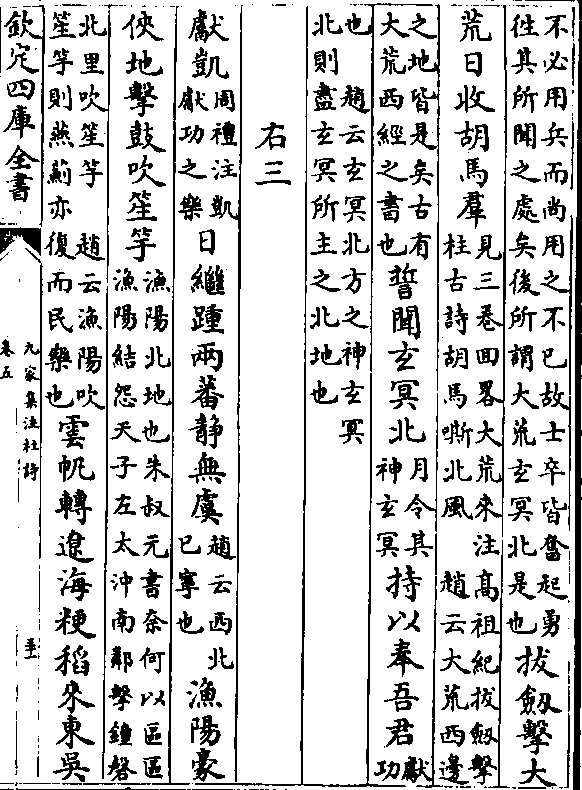 不必用兵而尚用之不已故士卒皆奮起勇
徃其所聞之處矣後所謂大荒玄冥北是也
拔劔擊大
荒日收胡馬羣
見三卷回畧大荒來注 高祖紀拔劔擊
柱古詩胡馬嘶北風 趙云大荒西邊
之地皆是矣古有
大荒西經之書也
誓聞玄冥北
月令其
神玄冥
持以奉吾君
獻
功
也 趙云玄冥北方之神玄冥
北則盡玄冥所主之北地也
右三
獻凱
周禮注凱
獻功之樂
日繼踵兩蕃静無虞
趙云西北
已寧也
漁陽豪
俠地擊鼓吹笙竽
漁陽北地也朱叔元書奈何以區區
漁陽結怨天子左太沖南鄰擊鐘磬
北里吹笙竽 趙云漁陽吹
笙竽則燕薊亦復而民樂也
雲帆轉遼海粳稻來東吳
欽定四庫全書
九家集注杜詩
卷五